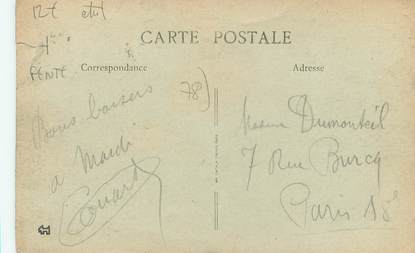 12€ état
FENTE
CARTE POSTALE
Correspondance
Adresse
78)
Bons baisers
a Mardi
Madame Dumonteil
7 Rue Burcq
Paris